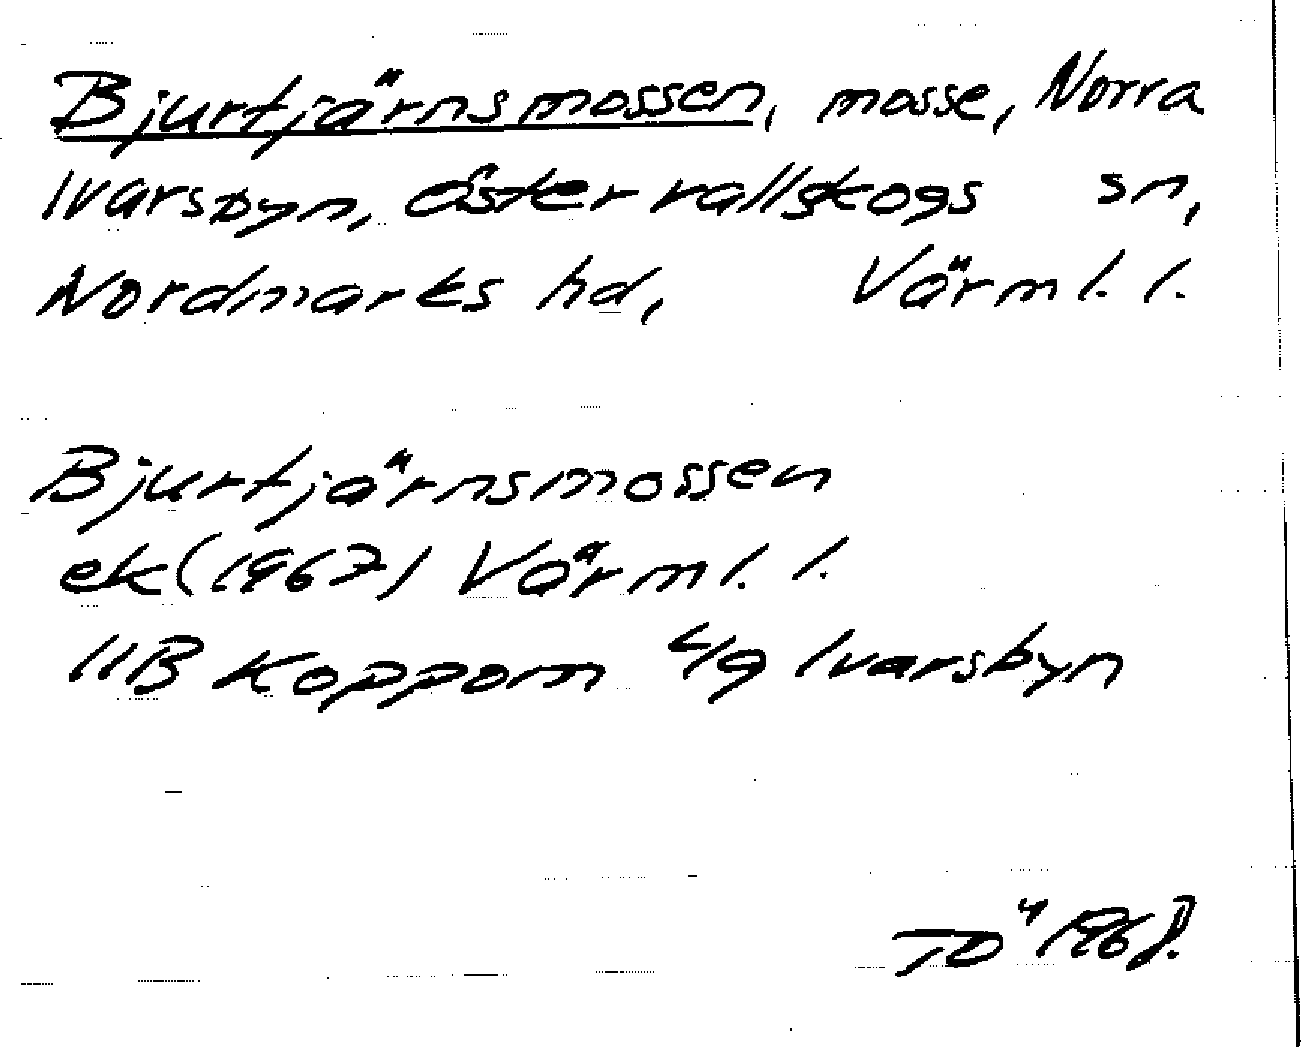 Bjurtjärnsmossen, mosse, Norra
Ivarsbyn, Östervallskogs sn,
Nordmarks hd, Värml. l.
Bjurtjärnsmossen
ek (1967) Värml. l.
11B Koppom 4/9 Ivarsbyn
TÖ 1968.